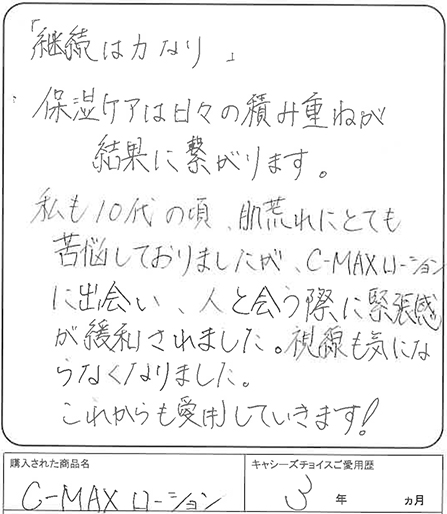 「継続は力なり」
保湿ケアは日々の積み重ねが
結果に繋がります。
私も10代の頃、肌荒れにとても
苦悩しておりましたが、C-MAXローション
に出会い、人と会う際に緊張感
が緩和されました。視線も気にな
らなくなりました。
これからも愛用していきます!
購入された商品名
キャシーズチョイスご愛用歴
C-MAX ローション
3年 ヵ月